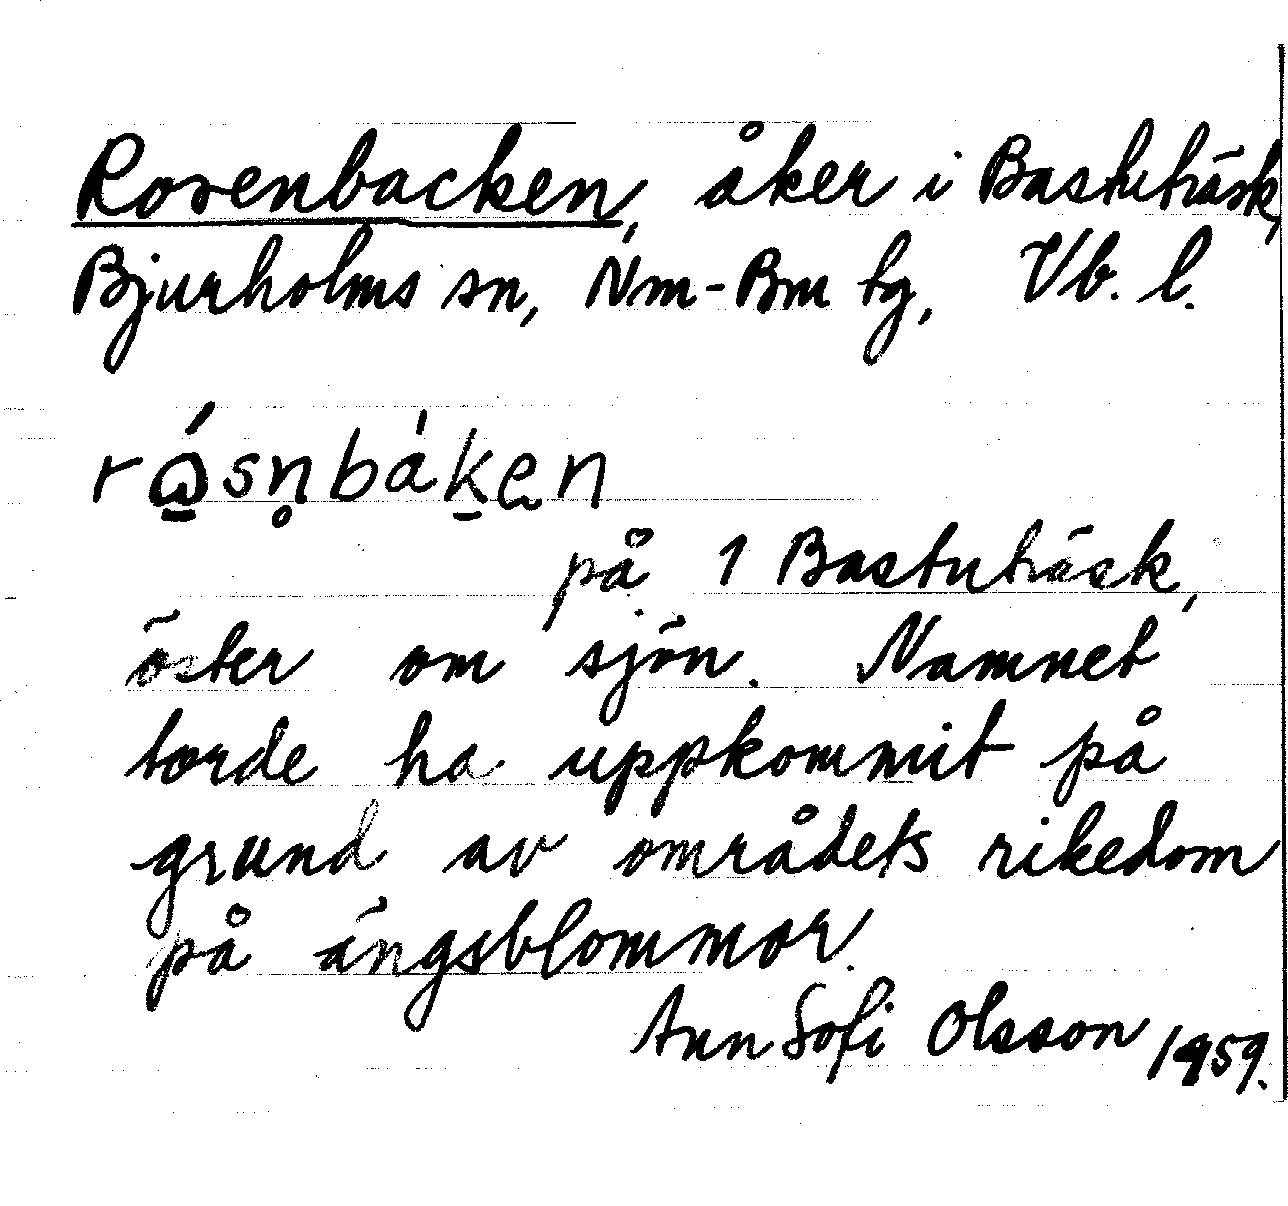 Rosenbacken, åker i Bastuträsk,
Bjurholms sn, Nm-Bm tg, Vb. l.
på 1 Bastuträsk,
öster om sjön. Namnet
torde ha uppkommit på
grund av områdets rikedom
på ängsblommor.
Ann Sofi Olsson 1959.